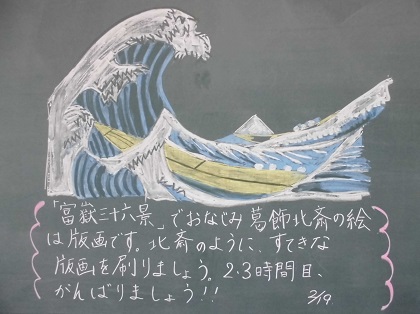 「富嶽三十六景」でおなじみ葛飾北斎の絵
は版画です。北斎のように、すてきな
版画を刷りましょう。2・3時間目、
がんばりましょう!!
3/19